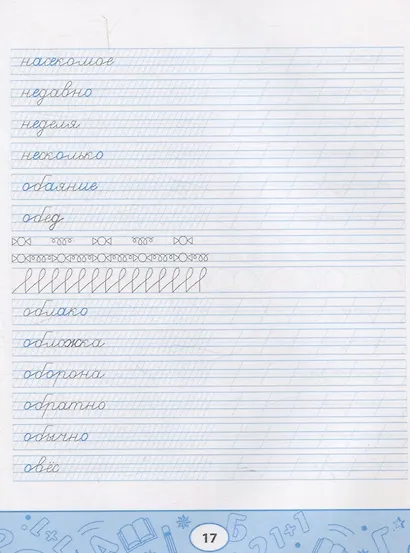 насекомое
недавно
неделя
несколько
обаяние
обед
облако
обложка
оборона
обратно
обычно
овёс
17